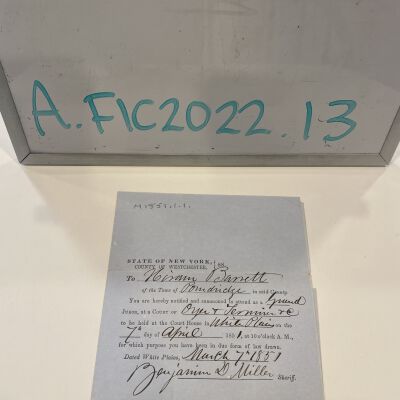 A.FIC2022.13
M1851.1.1.
STATE OF NEW YORK,
COUNTY OF WESTCHESTER, } SS.
To Hiram Barrett
of the Town of Poundridge in said County
You are hereby notified and summoned to attend as a Grand
Juror, at a Court of Oyer & Terminer &c
to be held at the Court House in White Plains on the
7th day of April 1851, at 10 o'clock A. M.,
for which purpose you have been in due form of law drawn.
Dated White Plains, March 7th 1851
Benjamin D Miller Sheriff.